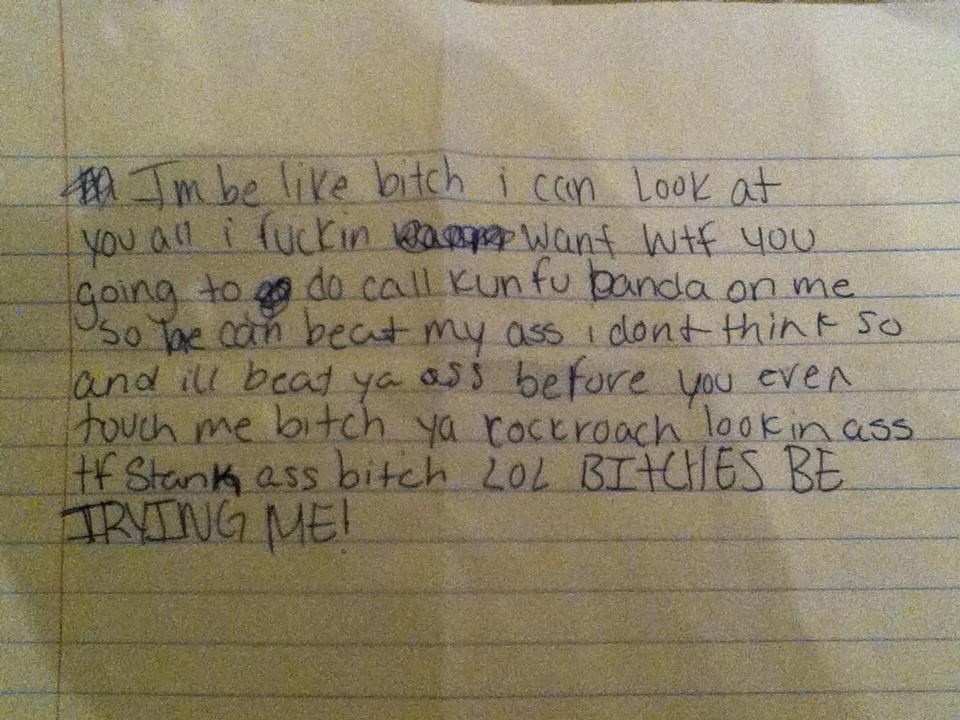 Im be like bitch i can look at
you all i fuckin want wtf you
going to do call kunfu banda on me
so he can beat my ass i dont think so
and ill beat ya ass before you even
touch me bitch ya rockroach lookin ass
tf stank ass bitch LOL BITCHES BE
TRYING ME!